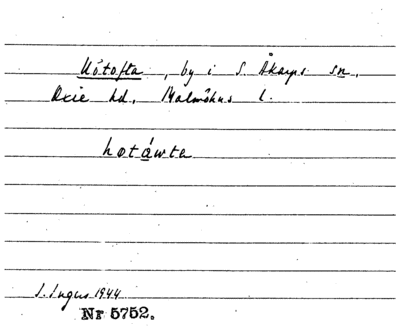 Uötofta, by i S. Åkarps sn,
Oxie hd, Malmöhus l.
høtáwta
J. Ingers 1944
Nr 5752.